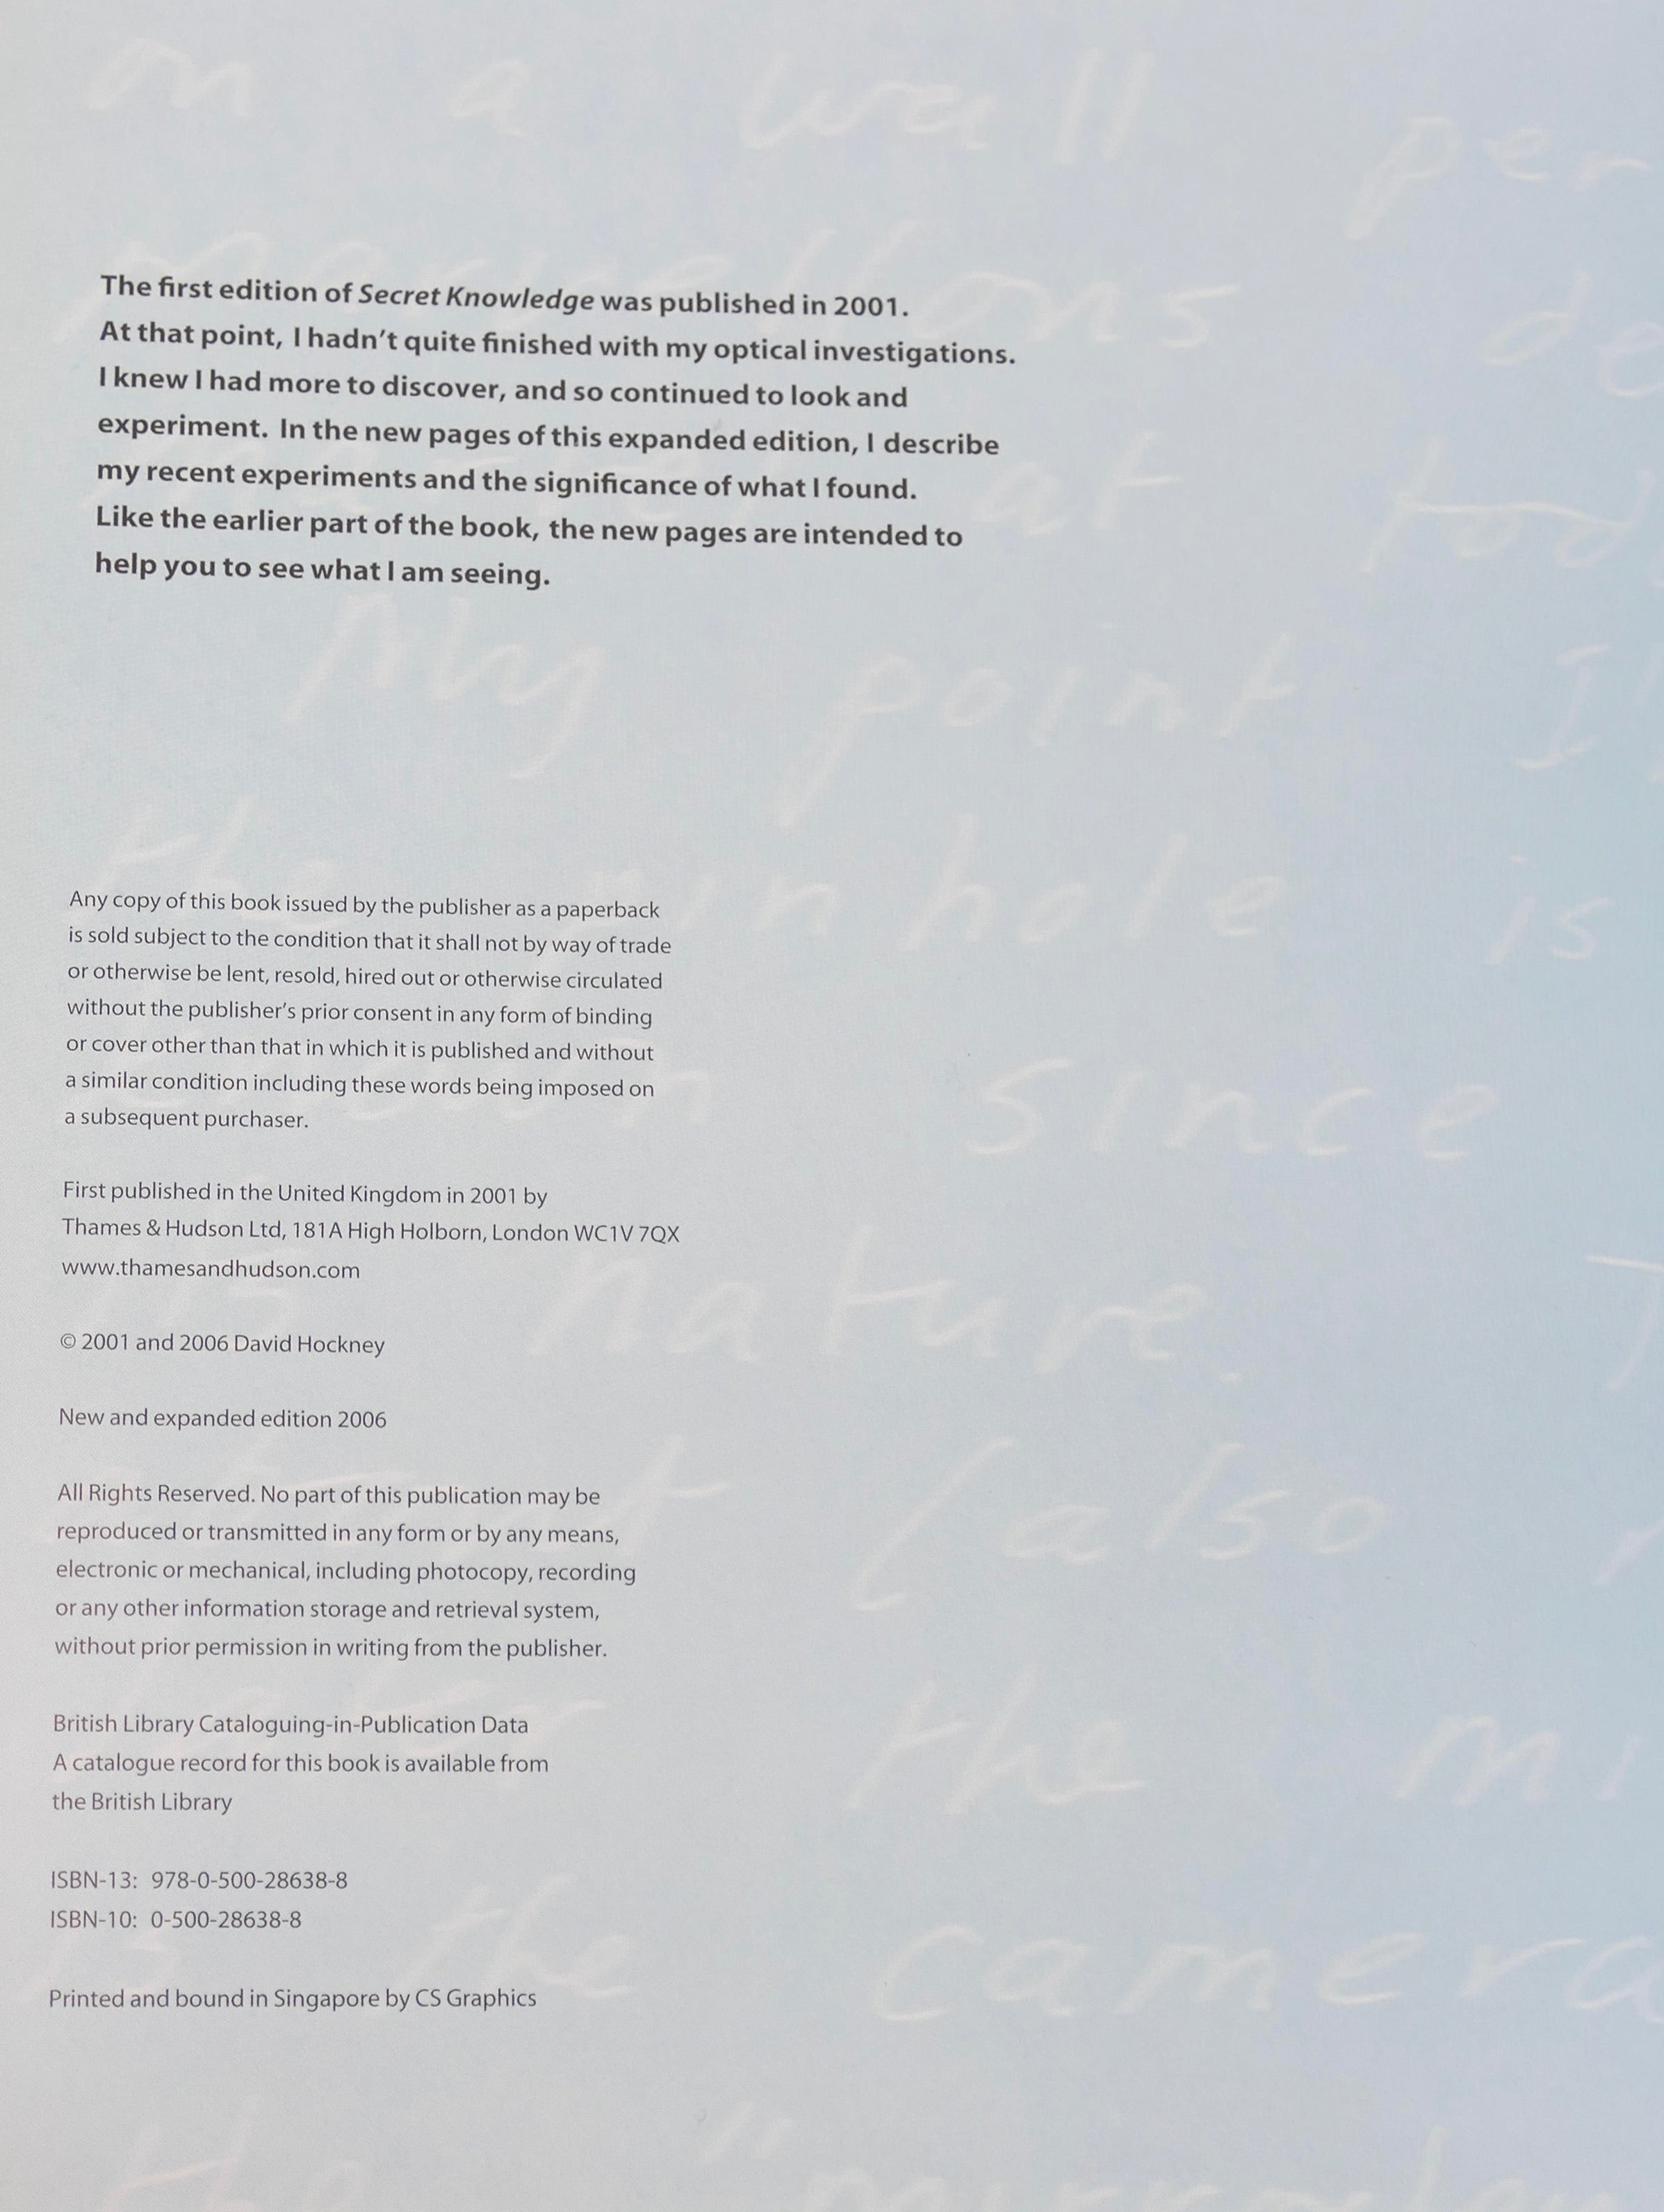 The first edition of Secret Knowledge was published in 2001.
At that point, I hadn't quite finished with my optical investigations.
I knew I had more to discover, and so continued to look and
experiment. In the new pages of this expanded edition, I describe
my recent experiments and the significance of what I found.
Like the earlier part of the book, the new pages are intended to
help you to see what I am seeing.
Any copy of this book issued by the publisher as a paperback
is sold subject to the condition that it shall not by way of trade
or otherwise be lent, resold, hired out or otherwise circulated
without the publisher's prior consent in any form of binding
or cover other than that in which it is published and without
a similar condition including these words being imposed on
a subsequent purchaser.
First published in the United Kingdom in 2001 by
Thames & Hudson Ltd, 181A High Holborn, London WC1V 7QX
www.thamesandhudson.com
© 2001 and 2006 David Hockney
New and expanded edition 2006
All Rights Reserved. No part of this publication may be
reproduced or transmitted in any form or by any means,
electronic or mechanical, including photocopy, recording
or any other information storage and retrieval system,
without prior permission in writing from the publisher.
British Library Cataloguing-in-Publication Data
A catalogue record for this book is available from
the British Library
ISBN-13: 978-0-500-28638-8
ISBN-10: 0-500-28638-8
Printed and bound in Singapore by CS Graphics
on a wall per
My point I
hole is
since
nature.
(also
the mi
is the camera
the